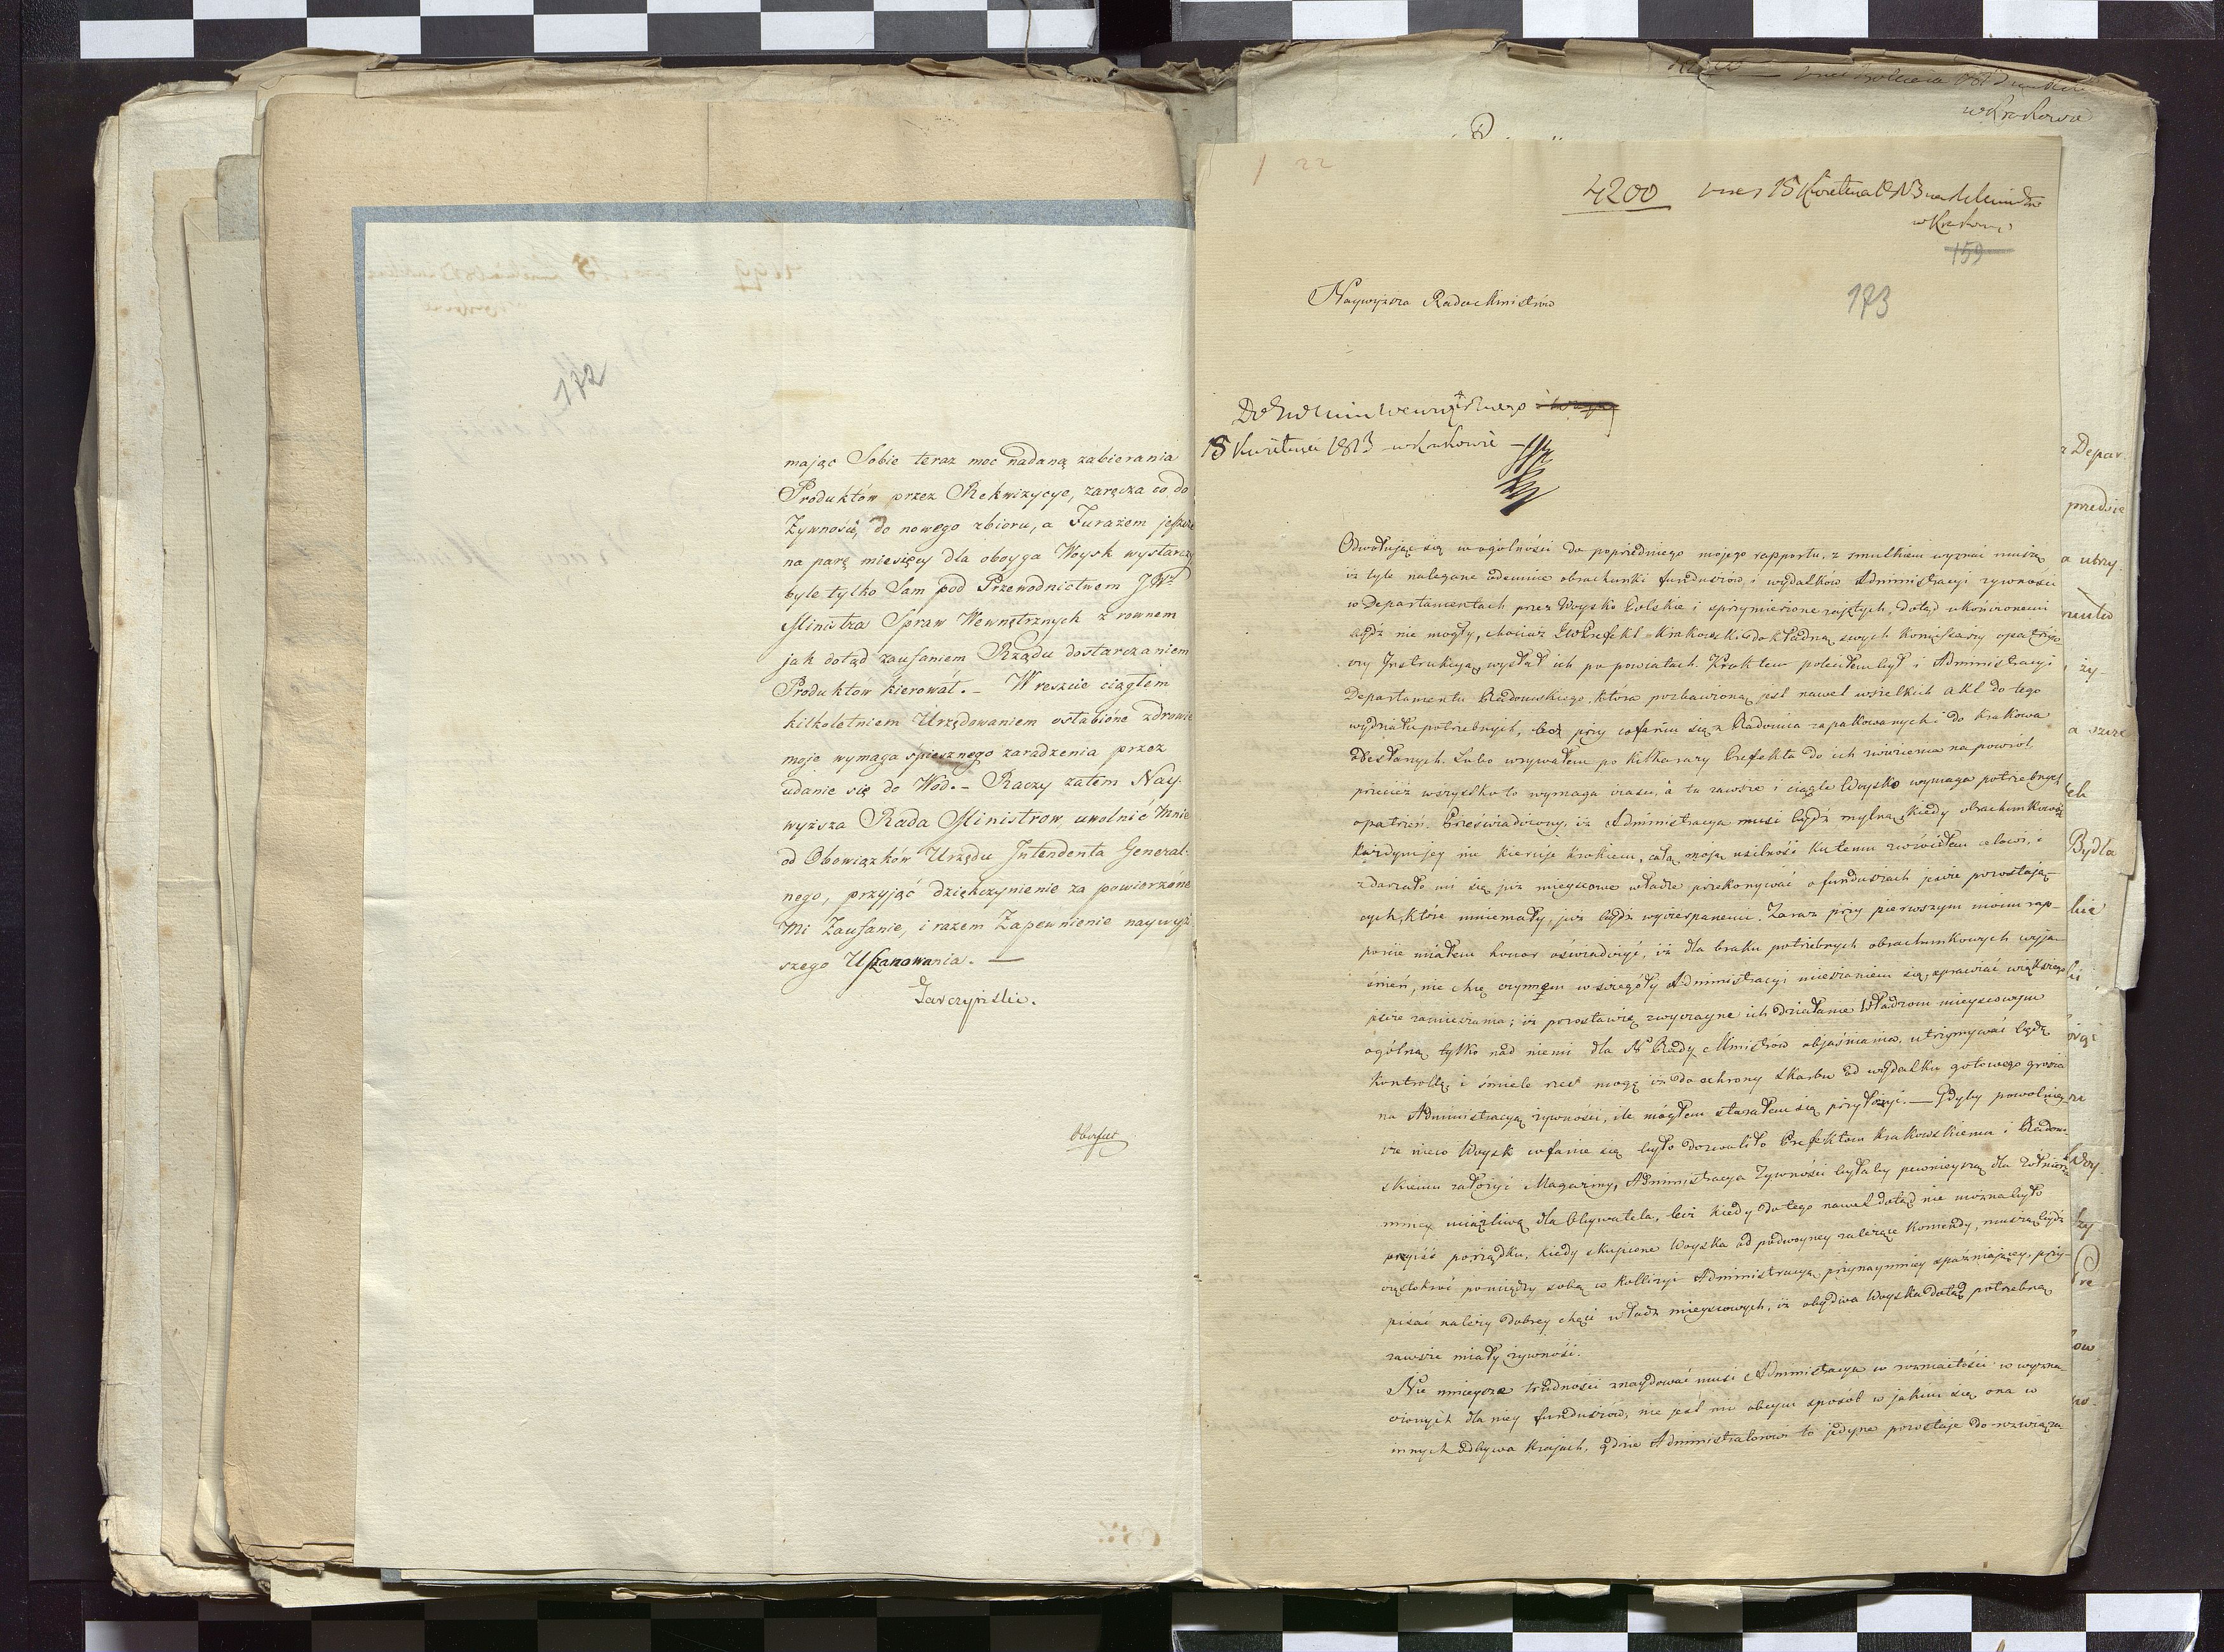 172
mając Sobie teraz moc nadaną zabierania
Produktów przez Rekwizycye, zaręcza co do
Żywności, do nowego zbioru, a Furażem jeszcze
na parę miesięcy dla oboyga Woysk wystarczy
byle tylko Sam pod Przewodnictwem JWo
Ministra Spraw Wewnętrznych z rownem
jak dotąd zaufaniem Rządu dostarczaniem
Produktow kierował. – Wreszcie ciągłem
kilkoletniem Urzędowaniem osłabione zdrowie
moje wymaga spiesznego zaradzenia przez
udanie się do Wod. – Raczy zatem Nay-
wyższa Rada Ministrow uwolnić mnie
od Obowiązków Urzędu Intendenta General-
nego, przyjąć dziękczynienie za powierzone
Mi Zaufanie, i razem Zapewnienie naywyż-
szego Uszanowania. —
Zarczyński.
22
4200 15 Kwietnia 1813
w Krakowie
159
173
Naywyższa Rada Ministrów
15 Kwietnia 1813 w Krakowie
Odwołując się w ogólności do poprzedniego mojego rapportu, z smutkiem wyznać muszę
iż tyle nalegane odemnie obrachunki funduszów i wydatków Administracyi żywności
w Departamentach przez Woysko Polskie i sprzymierzone zajętych, dotąd ukończonemi
bydź nie mogły, chociaż JWPrefekt Krakowski dokładną swych Kommissarzy opatrzyw-
szy Instrukcyą, wysłał ich po powiatach. Krok ten poleciłem był i Administracyi
Departamentu Radomskiego, która pozbawioną jest nawet wszelkich akt do tego
wydziału potrzebnych, bo przy cofaniu się z Radomia zapakowanych i do Krakowa
odesłanych. Lubo wzywałem po kilkarazy Prefekta do ich zwiezienia napowrót
przecież wszystko to wymaga czasu, a tu zawsze i ciągle Woysko wymaga potrzebnych
opatrzeń. Przeświadczony, iż Administracya musi bydź mylną, kiedy obrachunkowość
każdym jey nie kieruje krokiem, całą moją usilność ku temu zwróciłem celowi, i
zdarzało mi się już mieyscowe władze przekonywać o funduszach jeszcze pozostają-
cych, które mniemały, już bydź wyczerpanemi. Zaraz przy pierwszym moim rap-
porcie miałem honor oświadczyć, iż dla braku potrzebnych obrachunkowych wyja-
śnień, nie chcę czynnem w szczegóły Administracyi mieszaniem się, sprawiać większego
jeszcze zamieszania; iż pozostawię zwyczayne ich działanie Władzom mieyscowym
ogólną tylko nad niemi dla N Rady Ministrów objaśniania, utrzymywać będę
Kontrollę, i śmiele rzec mogę iż do ochrony Skarbu od wydatku gotowego grosza
na Administracyą żywności, ile mogłem starałem się przyłożyć. — Gdyby powolniey-
sze nieco Woysk cofanie się było dozwoliło Prefektom Krakowskiemu i Radom-
skiemu założyć Magazyny, Administracya Żywności byłaby pewnieyszą dla Żołnierza
mniey uciążliwą dla Obywatela, lecz kiedy do tego nawet dotąd nie można było
przyiść porządku, kiedy skupione Woyska od podwoyney zależące Komendy, muszą bydź
częstokroć pomiędzy sobą w kollizyi Administracyą przynaymniey spaźniającey, przy-
pisać należy dobrey chęci władz mieyscowych, iż obydwa Woyska dotąd potrzebną
zawsze miały żywność.
Nie mnieysze trudności znaydować musi Administracya w rozmaitości w wyzna-
czonych dla niey funduszow, nie jest mi obcym sposób w jakim się ona w
innych odbywa Krajach, gdzie Administratorowi to jedyne pozostaje do rozwiąza-